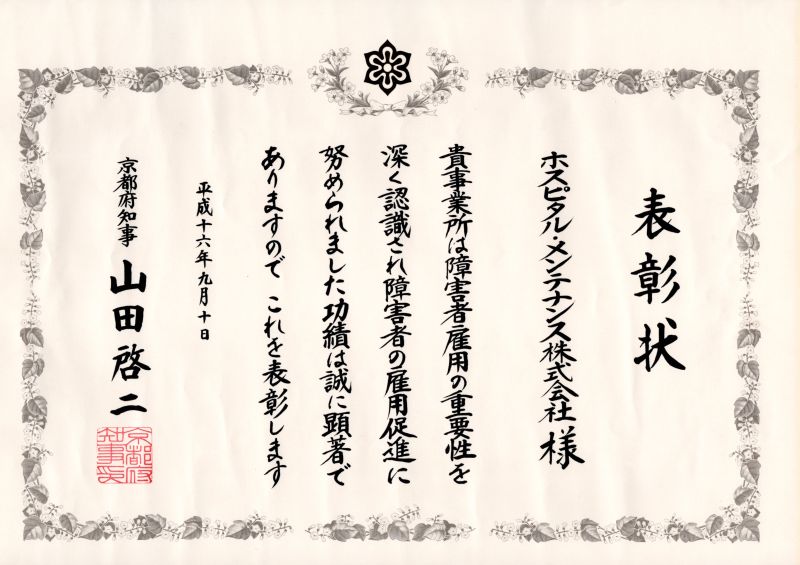 表彰状
ホスピタル・メンテナンス株式会社 様
貴事業所は障害者雇用の重要性を
深く認識され障害者の雇用促進に
努められました功績は誠に顕著で
ありますので これを表彰します
平成十六年九月十日
京都府知事 山田啓二
京都府
知事印